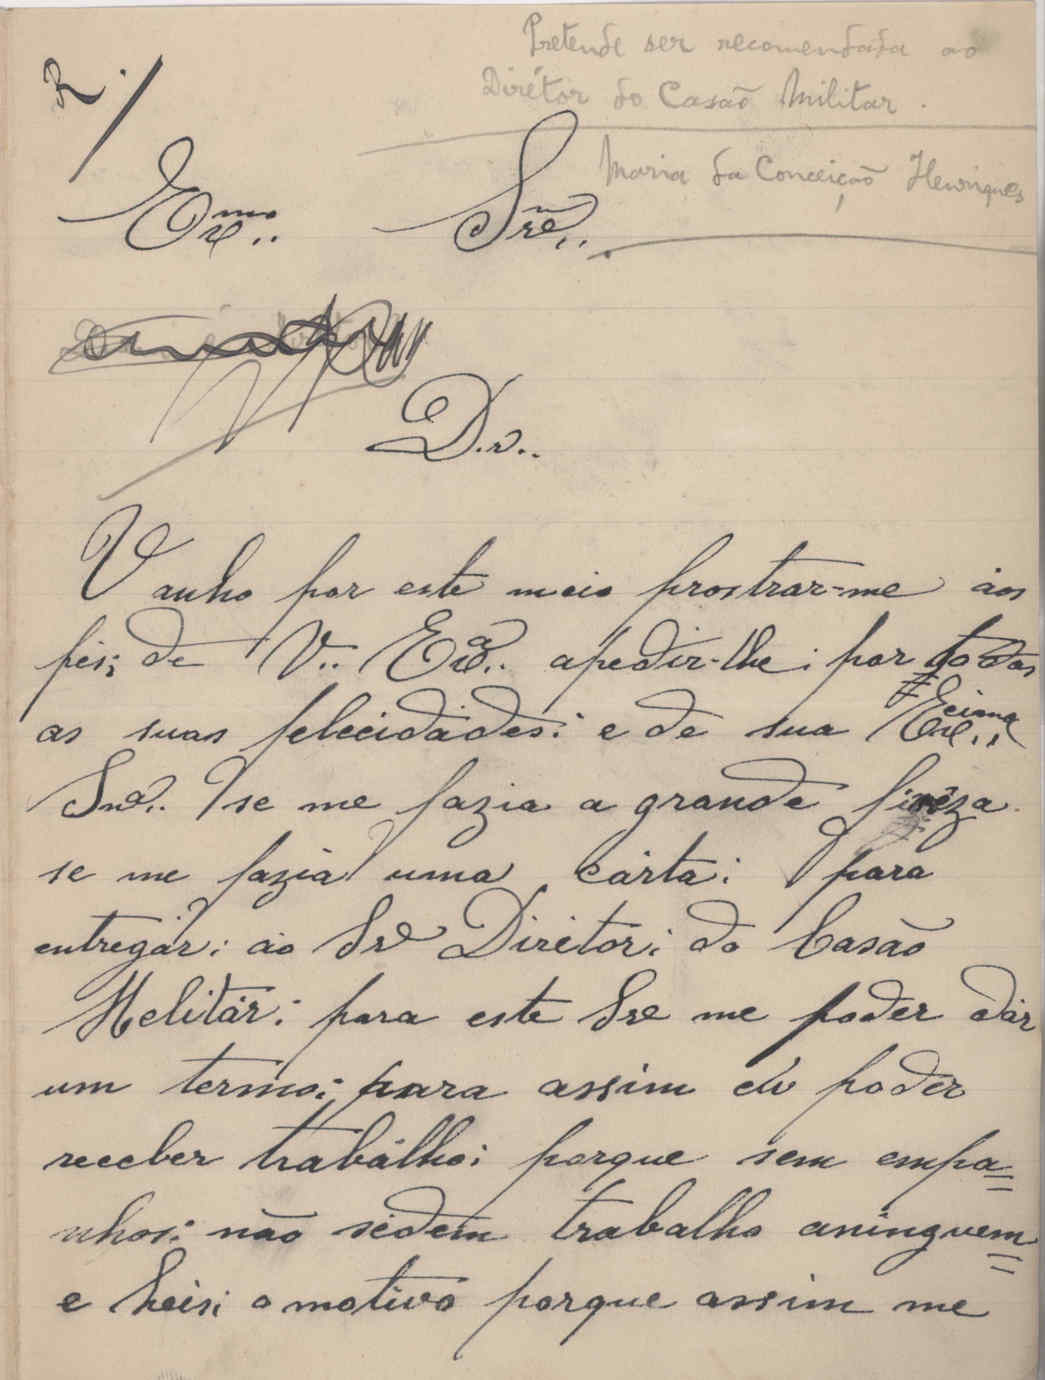 Pretende ser recomendada ao
Dirétor do Casão Militar.
Maria da Conceição Henriques
R.
Exmo.. Snre..
D.r..
Vanho por este meio prostrar-me áos
pés; de V.. Exª.. apedir-lhe: por todas
as suas felecidádes: e de sua Eciama Exe..
Snrª.. se me fazia a grande finêza
se me fazia uma cárta: para
entregár: áo Sre Dirétor: do Casão
Melitár: para este Sre me poder dár
um termo: para assim eu poder
receber trabálho: porque sem empa=
nhos: não sédem trabalho aninguem=
e heis: o motivo porque assim me